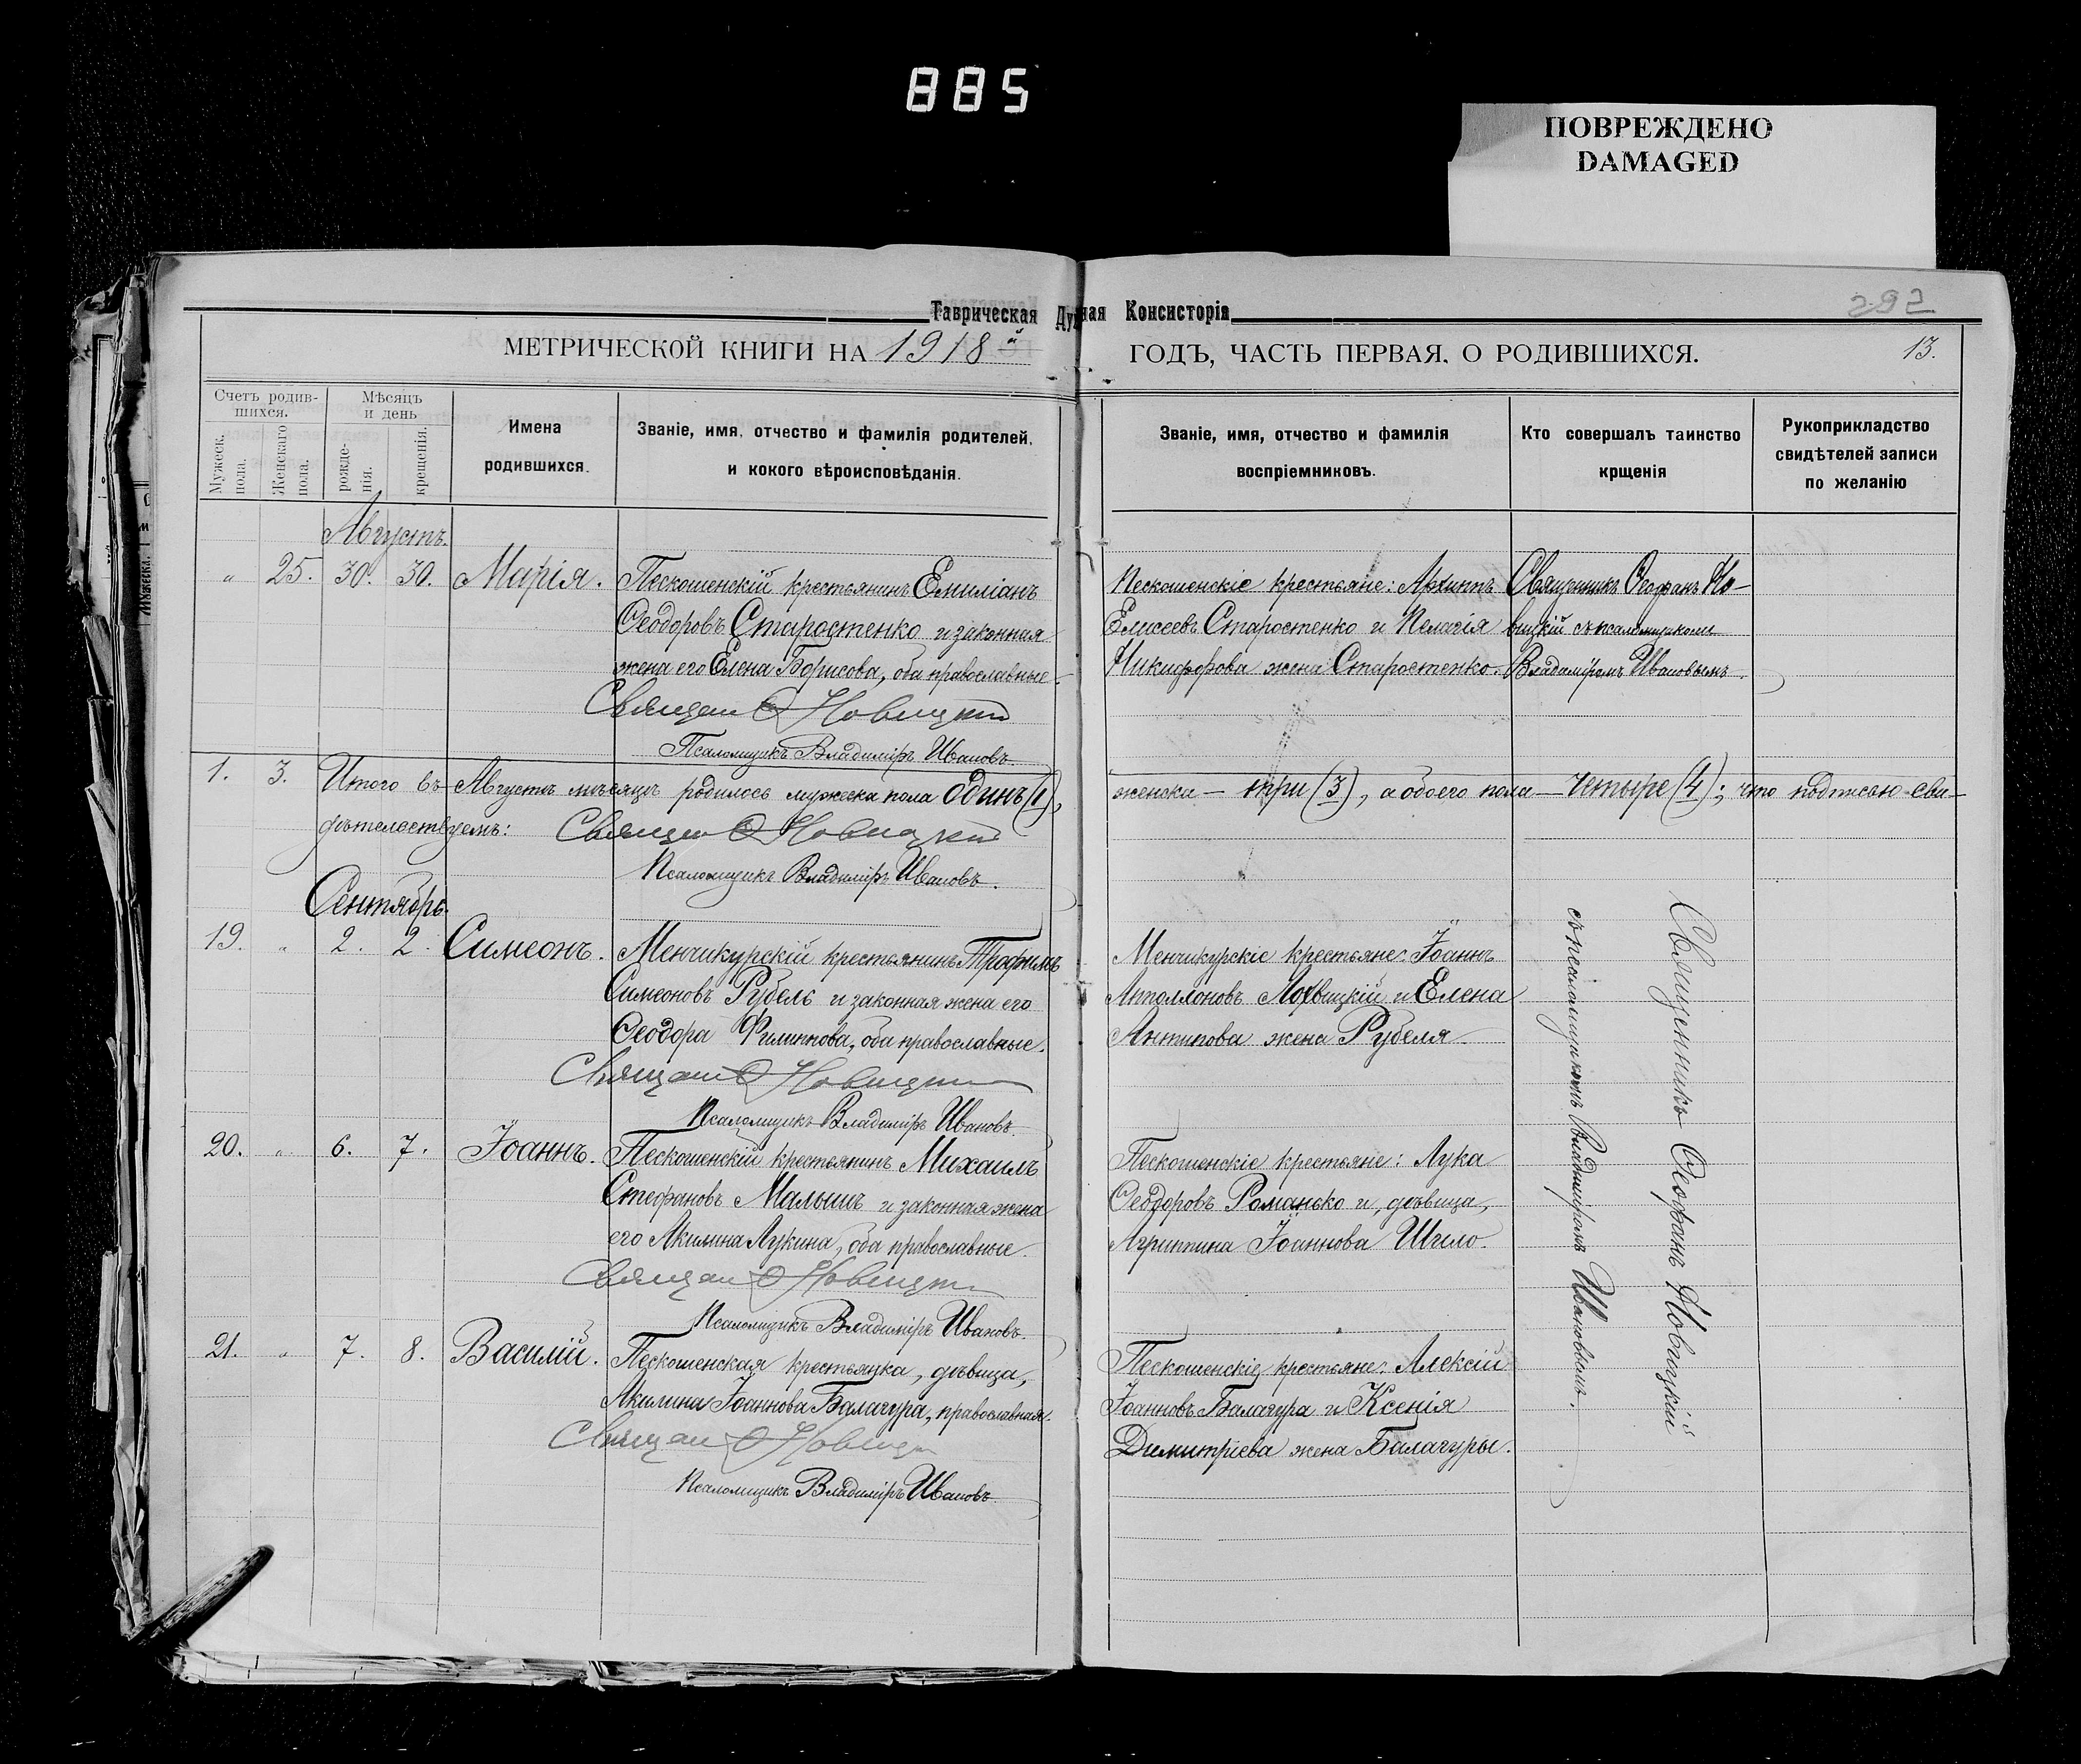 885
ПОВРЕЖДЕНО
DAMAGED
Таврическая Духная Консисторія
292
МЕТРИЧЕСКОЙ КНИГИ НА 1918й ГОДЪ, ЧАСТЬ ПЕРВАЯ, О РОДИВШИХСЯ.
13.
Счетъ родив-
шихся.
Мужеск.
пола.
Женскаго
пола.
Мѣсяцъ
и день
рожде-
нія.
крещенія.
Имена
родившихся.
Званіе, имя, отчество и фамилія родителей,
и кокого вѣроисповѣданія.
Званіе, имя, отчество и фамилія
воспріемниковъ.
Кто совершалъ таинство
крщенія
Рукоприкладство
свидѣтелей записи
по желанію
Августъ.
" 25. 30. 30. Марія.
Пескошенскій крестьянинъ Емиліанъ
Ѳеодоровъ Старостенко и законная
жена его Елена Борисова, оба православные.
Священ Ѳ Новицкій
Псаломщикъ Владиміръ Ивановъ.
Пескошенскіе крестьяне: Архиппъ
Елисеевъ Старостенко и Пелагія
Никифорова жена Старостенко.
Священникъ Ѳеофанъ Но-
вицкій съ псаломщикомъ
Владиміромъ Ивановымъ.
1. 3. Итого въ Августѣ мѣсяцѣ родилось мужеска пола один(1), женска — три (3), а обоего пола — четыре (4); что подписью сви-
дѣтельствуемъ: Священ Ѳ Новицкій
Псаломщикъ Владиміръ Ивановъ.
Сентябрь.
19. " 2. 2. Симеонъ.
Менчикурскій крестьянинъ Трофимъ
Симеоновъ Рубель и законная жена его
Ѳеодора Филиппова, оба православные.
Священ Ѳ Новицкій
Псаломщикъ Владиміръ Ивановъ.
Менчикурскіе крестьяне: Іоаннъ
Аполлоновъ Лохвицкій и Елена
Антипова жена Рубеля.
20. " 6. 7. Іоаннъ.
Пескошенскій крестьянинъ Михаилъ
Стефановъ Малышъ и законная жена
его Акилина Лукина, оба православные.
Священ Ѳ Новицкій
Псаломщикъ Владиміръ Ивановъ.
Пескошенскіе крестьяне: Лука
Ѳеодоровъ Романько и, дѣвица,
Агриппина Іоаннова Шило.
21. " 7. 8. Василій.
Пескошенская крестьянка, дѣвица,
Акилина Іоаннова Балагура, православная.
Священ Ѳ Новицкій
Псаломщикъ Владиміръ Ивановъ.
Пескошенскіе крестьяне: Алексій
Іоанновъ Балагура и Ксенія
Димитріева жена Балагуры.
Священникъ Ѳеофанъ Новицкій
съ псаломщикомъ Владиміромъ Ивановымъ.